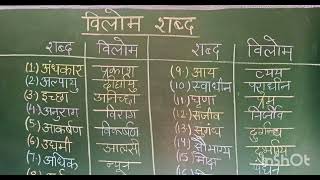 विलोम शब्द
शब्द विलोम शब्द विलोम
(1) अंधकार प्रकाश (9) आय व्यय
(2) अल्पायु दीर्घायु (10) स्वाधीन पराधीन
(3) इच्छा अनिच्छा (11) घृणा प्रेम
(4) अनुराग विराग (12) सजीव निर्जीव
(5) आकर्षण विकर्षण (13) सुगंध दुर्गन्ध
(6) उद्यमी आलसी (14) सौभाग्य दुर्भाग्य
(7) अधिक न्यून (15)